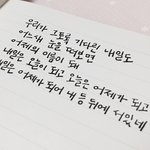 우리가 그토록 기다린 내일도
어느새 눈을 떠보면
어제의 이름이 돼
내일은 오늘이 되고 오늘은 어제가 되고
내일은 어제가 되어 내 등 뒤에 서있네